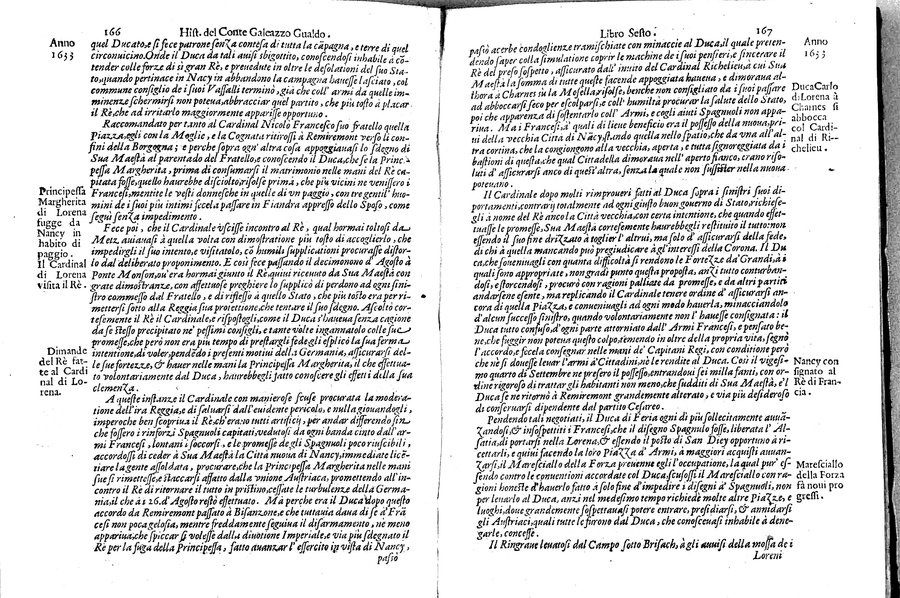 166 Hist. del Conte Galeazzo Gualdo.
Anno
1633
quel Ducato, e si fece patrone senza contesa di tutta la cãpagna, e terre di quel
circonuicino. Onde il Duca da tali auuisi sbigottito, conoscendosi inhabile à con-
tender colle forze di sì gran Rè, e preuedute in oltre le desolationi del suo Sta-
to, quando pertinace in Nacy in abbandono la campagna hauesse lasciato, col
commune consiglio de i suoi Vassalli terminò, già che coll' armi da quelle im-
minenze schermirsi non poteua, abbracciar quel partito, che più tosto à placar
il Rè, che ad irritarlo maggiormente apparisse opportuno.
Raccomandato per tanto al Cardinal Nicolo Francesco suo fratello quella
Piazza, egli con la Moglie, e la Cognata ritirossi à Remiremont verso li con-
fini della Borgogna; e perche sopra ogn' altra cosa appoggiauasi lo sdegno di
Sua Maestà al parentado del Fratello, e conoscendo il Duca, che se la Princi-
pessa Margherita, prima di consumarsi il matrimonio nelle mani del Rè ca-
pitata fosse, quello haurebbe disciolto, risolse prima, che più vicini ne venissero i
Francesi, mentite le vesti donnesche in quelle di vn paggio, con tre gentil' huo-
mini de i suoi più intimi fecela passare in Fiandra appresso dello Sposo, come
seguì senza impedimento.
Principessa
Margherita
di Lorena
fugge da
Nancy in
habito di
paggio.
Il Cardinal
di Lorena
visita il Rè.
Fece poi, che il Cardinale vscisse incontro al Rè, qual hormai toltosi da
Metz, auuiauasi à quella volta con dimostratione più tosto di accoglierlo, che
impedirgli il suo intento, e visitatolo, cõ humili supplicationi procurasse distor-
lo dal deliberato proponimento. E così fece passando il dicennono d' Agosto à
Ponte Monson, ou' era hormai giunto il Rè, quiui riceuuto da Sua Maestà con
grate dimostranze, con affettuose preghiere lo supplicò di perdono ad ogni sini-
stro commesso dal Fratello, e di riflesso à quello Stato, che più tosto era per ri-
mettersi sotto alla Reggia sua protettione, che tentare il suo sdegno. Ascoltò cor-
tesemente il Rè il Cardinale, e rispostegli, come il Duca s'haueua senza cagione
da se stesso precipitato ne' pessimi consigli, e tante volte ingannatolo colle sue
promesse, che però non era più tempo di prestargli fede, gli esplicò la sua ferma
intentione, di voler, pendẽdo i presenti motiui della Germania, assicurarsi del-
le sue fortezze, & hauer nelle mani la Principessa Margherita, il che effettua-
to volontariamente dal Duca, haurebbegli fatto conoscere gli effetti della sua
clemenza.
Dimande
del Rè fat-
te al Cardi
nal di Lo-
rena.
A queste instanze il Cardinale con manierose scuse procurata la modera-
tione dell'ira Reggia, e di saluarsi dall'euidente pericolo, e nulla giouandogli,
imperoche ben scopriua il Rè, ch'erano tutti artificij, per andar differendo fin
che fossero i rinforzi Spagnuoli capitati, vedutosi da ogni banda cinto dall' ar
mi Francesi, lontani i soccorsi, e le promesse de gli Spagnuoli poco riuscibili,
accordossi di ceder à Sua Maestà la Città nuoua di Nancy, immediate licẽ-
tiare la gente assoldata, procurare, che la Principessa Margherita nelle mani
sue si rimettesse, e staccarsi affatto dalla vnione Austriaca, promettendo all'in-
contro il Rè di ritornare il tutto in pristino, cessate le turbulenze della Germa-
nia, il che à i 26. d' Agosto restò effettuato. Mà perche era il Duca dopo questo
accordo da Remiremont passato à Bisanzone, e che tuttauia daua di se à Frã
cesi non poca gelosia, mentre freddamente seguiua il disarmamento, nè meno
appariua, che spiccar si volesse dalla diuotione Imperiale, e via più sdegnato il
Rè per la fuga della Principessa, fatto auanzar l' essercito in vista di Nancy,
pasiò
Libro Sesto. 167
Anno
1633
pasiò acerbe condoglienze tramischiate con minaccie al Duca, il quale preten-
dendo saper colla simulatione coprir le machine de i suoi pensieri, e sincerare il
Rè del preso sospetto, assicurato dall' inuito del Cardinal Richelieu, à cui Sua
Maestà la somma di tutte queste facende appoggiata haueua, e dimoraua al-
lhora à Charnes sù la Mosella, risolse, benche non consigliato da i suoi passar
ad abboccarsi seco per escolparsi, e coll' humiltà procurar la salute dello Stato,
poi che apparenza di sostentarlo coll' Armi, e cogli aiuti Spagnuoli non appa-
riua. Ma i Francesi, a' quali di lieue beneficio era il possesso della nuoua, pri-
ui della vecchia Città di Nãcy, stando quella nello spatio, che da vna all' al-
tra cortina, che la congiongono alla vecchia, aperta, e tutta signoreggiata da i
bastioni di questa, che qual Cittadella dimoraua nell' aperto fianco, erano riso-
luti di assicurarsi anco di quest' altra, senza la quale non sussister nella nuoua
poteuano.
Duca Carlo
di Lorena à
Charnes si
abbocca
col Cardi-
nal di Ri-
chelieu.
Il Cardinale dopo molti rimproueri fatti al Duca sopra i sinistri suoi di-
portamenti, contrarij totalmente ad ogni giusto buon gouerno di Stato, richies-
egli à nome del Rè anco la Città vecchia, con certa intentione, che quando effet-
tuasse le promesse, Sua Maestà cortesemente haurebbegli restituito il tutto: non
essendo il suo fine drizzato à toglier l'altrui, ma solo d' assicurarsi della fede,
di chi à quella mancando può pregiudicare à gl'interessi della Corona. Il Du-
ca, che sonenuagli con quanta difficoltà si rendono le Fortezze da' Grandi, à i
quali sono appropriate, non gradì punto questa proposta, anzi tutto conturban-
dosi, e storcendosi, procurò con ragioni palliate da promesse, e da altri partiti
andarsene esente, ma replicando il Cardinale tenere ordine d' assicurarsi an-
cora di quella Piazza, e conueniuagli ad ogni modo hauerla, minacciandolo
d' alcun successo sinistro, quando volontariamente non l' hauesse consegnata: il
Duca tutto confuso, d' ogni parte attorniato dall' Armi Francesi, e pensato be-
ne, che fuggir non poteua questo colpo, temendo in oltre della propria vita, segnò
l'accordo, e fecela consegnar nelle mani de' Capitani Regi, con conditione però
che nè si douesse leuar l' armi à' Cittadini, nè le rendite al Duca. Così il vigesi-
mo quarto di Settembre ne presero il possesso, entrandoui sei milla fanti, con or-
dine rigoroso di trattar gli habitanti non meno, che sudditi di Sua Maestà, e'l
Duca se ne ritornò à Remiremont grandemente alterato, e via più desideroso
di conseruarsi dipendente dal partito Cesareo.
Nancy con
signato al
Rè di Fran-
cia.
Pendendo tali negotiati, il Duca di Feria ogni dì più sollecitamente auuã-
zandosi, & insospettiti i Francesi, che il disegno Spagnuolo fosse, liberata l' Al-
satia, di portarsi nella Lorena, & essendo il posto di San Diey opportuno à ri-
cettarli, e quiui facendo la loro Piazza d' Armi, à maggiori acquisti auuan-
zarsi, il Maresciallo della Forza preuenne egli l'occupatione, la qual pur' es-
sendo contro le conuentioni accordate col Duca, scusossi il Maresciallo con ra-
gioni honeste d' hauerlo fatto à solo fine d' impedire i disegni à Spagnuoli, non
per leuarlo al Duca, anzi nel medesimo tempo richiede molte altre Piazze, e
luoghi, doue grandemente sospettauasi potere entrare, presidiarsi, & annidarsi
gli Austriaci, quali tutte le furono dal Duca, che conosceuasi inhabile à dene-
garle, concesse.
Maresciallo
della Forza
fà noui pro
gressi.
Il Ringraue leuatosi dal Campo sotto Brisach, à gli auuisi della mossa de i
Loreni